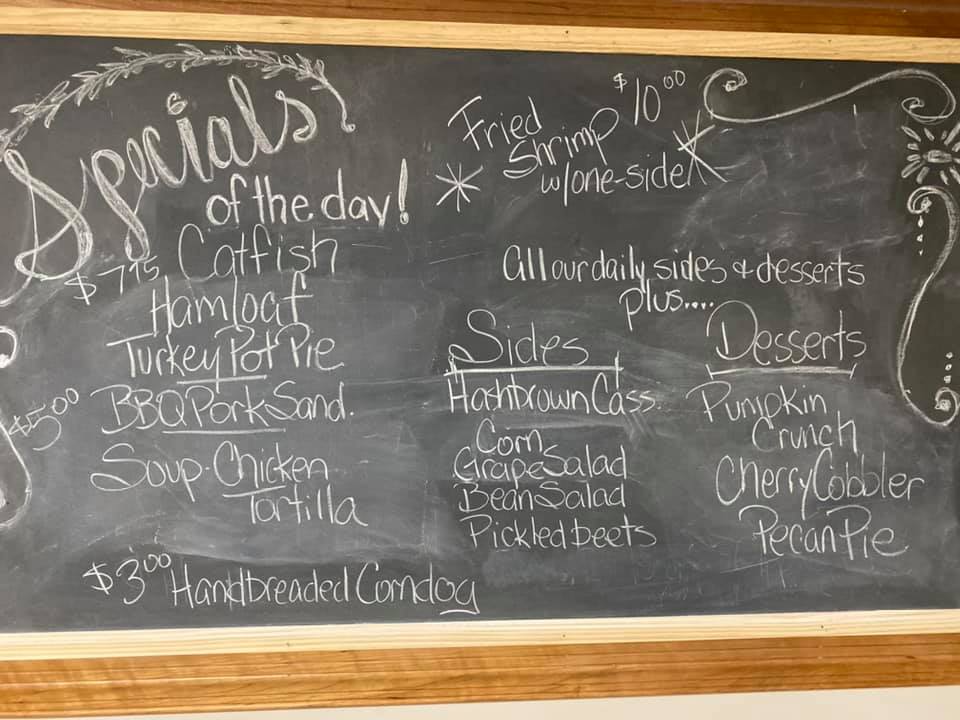 Specials
of the day!
$7.75 Catfish
Hamloaf
Turkey Pot Pie
$5.00 BBQ Pork Sand.
Soup-Chicken
Tortilla
$3.00 Handbreaded Corndog
Fried $10.00
Shrimp
w/one-side
All our daily sides & desserts
plus....
Sides
Hashbrown Cass.
Corn
Grape Salad
Bean Salad
Pickled beets
Desserts
Pumpkin
Crunch
Cherry Cobbler
Pecan Pie